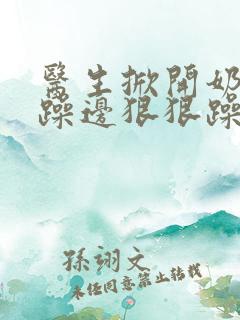 醫生掀開奶
躁邊狠狠躁
孫翊文
未任同意禁止轉載